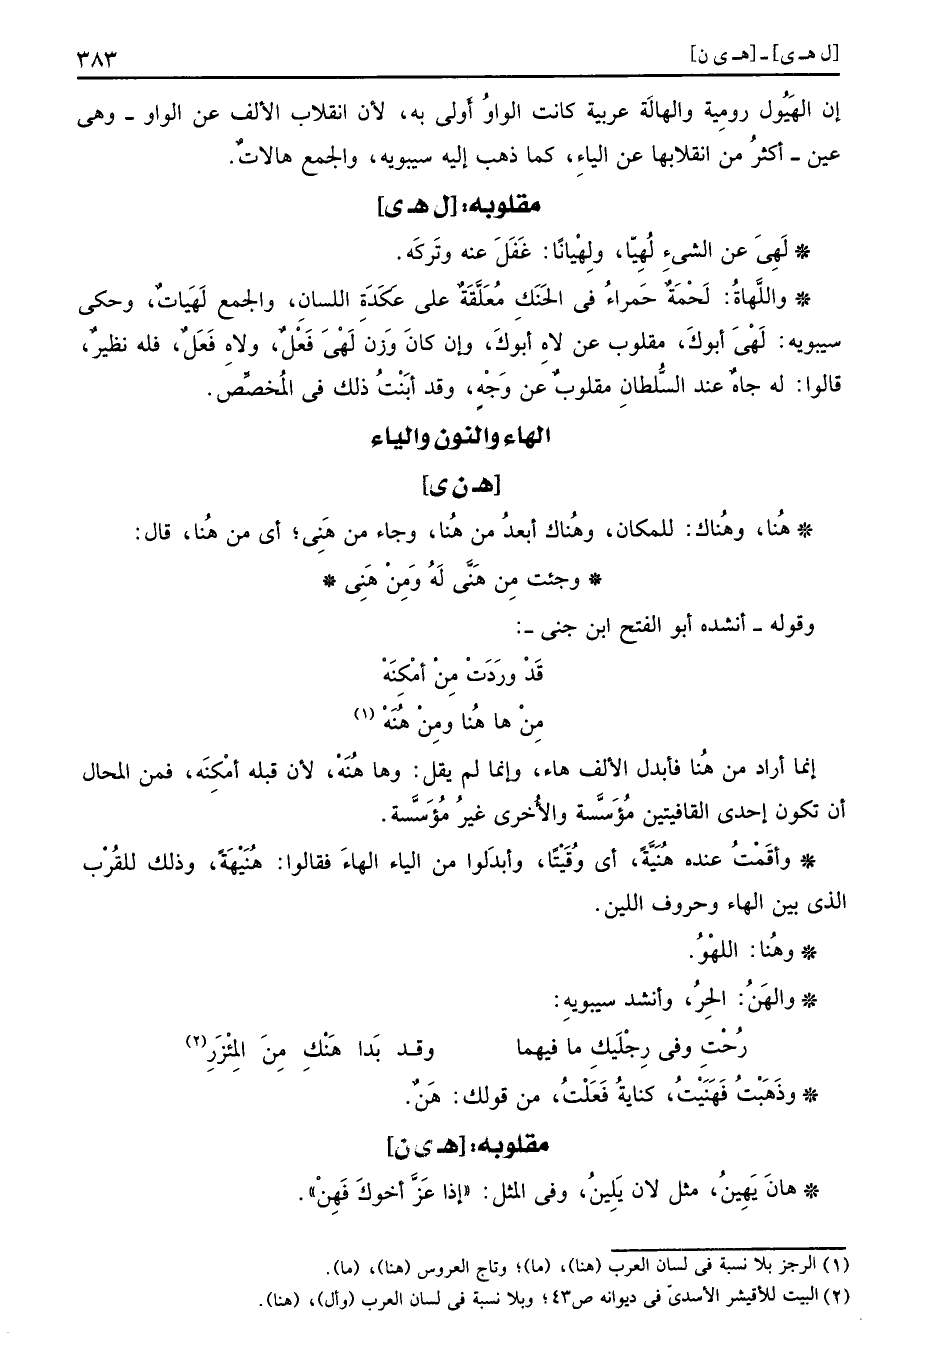 [ل هـ ى] ـ [هـ ى ن] ٣٨٣
إن الهَيُول رومية والهالَة عربية كانت الواوُ أَولى به، لأن انقلاب الألف عن الواو ـ وهى
عين ـ أكثرُ من انقلابها عن الياءِ، كما ذهب إليه سيبويه، والجمع هالاتٌ.
مقلوبه: [ل هـ ى]
* لَهِىَ عن الشىءِ لُهِيّا، ولِهْيانًا: غَفَلَ عنه وتَركَه.
* واللَّهاةُ: لَحْمَةٌ حَمراءُ فى الحَنَكِ مُعَلَّقَةٌ على عكَدَةِ اللسان، والجمع لَهَياتٌ، وحكى
سيبويه: لَهْىَ أبوكَ، مقلوب عن لاهِ أبوكَ، وإن كانَ وَزن لَهْىَ فَعْلٌ، ولاهِ فَعَلٌ، فله نظيرٌ،
قالوا: له جاهٌ عند السُّلطانِ مقلوبٌ عن وَجْهٍ، وقد أبَنْتُ ذلك فى المُخصِّص.
الهاء والنون والياء
[هـ ن ى]
* هُنا، وهُناك: للمكان، وهُناك أبعدُ من هُنا، وجاء من هَنِى؛ أى من هُنا، قال:
* وجئت مِن هَنَّى لَهُ وَمِنْ هَنِى *
وقوله ـ أنشده أبو الفتح ابن جنى ـ:
قَدْ وَرَدَتْ مِنْ أمْكِنَهْ
مِنْ ها هُنا ومِنْ هُنَهْ (١)
إنما أراد من هُنا فأبدل الألف هاء، وإنما لم يقل: وها هُنَهْ، لأن قبله أمْكِنَه، فمن المحال
أن تكون إحدى القافيتين مُؤَسَّسة والأُخرى غيرُ مُؤَسَّسة.
* وأقَمْتُ عنده هُنَيَّةً، أى وُقَيْتًا، وأبدَلوا من الياء الهاءَ فقالوا: هُنَيْهَةً، وذلك للقُرْب
الذى بين الهاء وحروف اللين.
* وهُنا: اللهْوُ.
* والهَنُ: الحِرُ، وأنشد سيبويه:
رُحْتِ وفى رِجْلَيكِ ما فيهما وقـد بَدا هَنْكِ مِنَ المِئْزَرِ (٢)
* وذَهَبْتُ فَهَنَيْتُ، كنايةُ فَعَلْتُ، من قولك: هَنٌ.
مقلوبه: [هـ ى ن]
* هانَ يَهِينُ، مثل لان يَلِينُ، وفى المثل: «إذا عَزَّ أخوكَ فَهِنْ».
(١) الرجز بلا نسبة فى لسان العرب (هنا)، (ما)؛ وتاج العروس (هنا)، (ما).
(٢) البيت للأقيشر الأسدىّ فى ديوانه ص٤٣؛ وبلا نسبة فى لسان العرب (وأل)، (هنا).